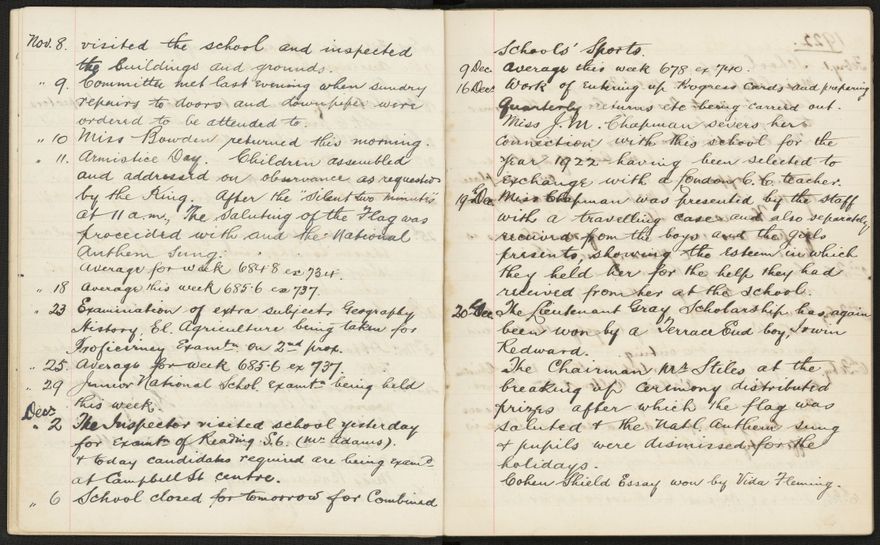 Nov. 8. visited the school and inspected
the buildings and grounds.
" 9. Committee met last evening when sundry
repairs to doors and downpipes were
ordered to be attended to.
" 10 Miss Bowden returned this morning.
" 11. Armistice Day. Children assembled
and addressed on observance as requested
by the King. After the "silent two minutes"
at 11 a.m., The Saluting of the Flag was
proceeded with and the National
Anthem Sung.
Average for week 684.8 ex 734.
" 18 Average this week 685.6 ex 737.
" 23 Examination of extra subjects Geography
History, El. Agriculture being taken for
Proficiency Examtn on 2nd prox.
" 25 Average for week 685.6 ex 737.
" 29 Junior National Schol. Examtn being held
this week.
Decr
" 2 The Inspector visited school yesterday
for Examtn of Reading S.6. (Mr Adams).
& today candidates required are being examd
at Campbell St centre.
" 6 School closed for tomorrow for Combined
Schools' Sports.
9 Dec. Average this week 678 ex 740.
16 Decr Work of entering up Progress Cards and preparing
Quarterly returns etc being carried out.
Miss J. M. Chapman severs her
connection with this school for the
year 1922 having been selected to
exchange with a London C.C. teacher.
19 Dec Miss Chapman was presented by the staff
with a travelling case and also separately
received from the boys and the girls
presents, showing the esteem in which
they held her for the help they had
received from her at the school.
20 Dec The Lieutenant Gray Scholarship has again
been won by a Terrace End boy,
Redward.
The Chairman Mr Stiles at the
breaking up ceremony distributed
prizes after which the flag was
saluted & the Natl. Anthem sung
& pupils were dismissed for the
holidays.
Cohen Shield Essay won by Vida Fleming.